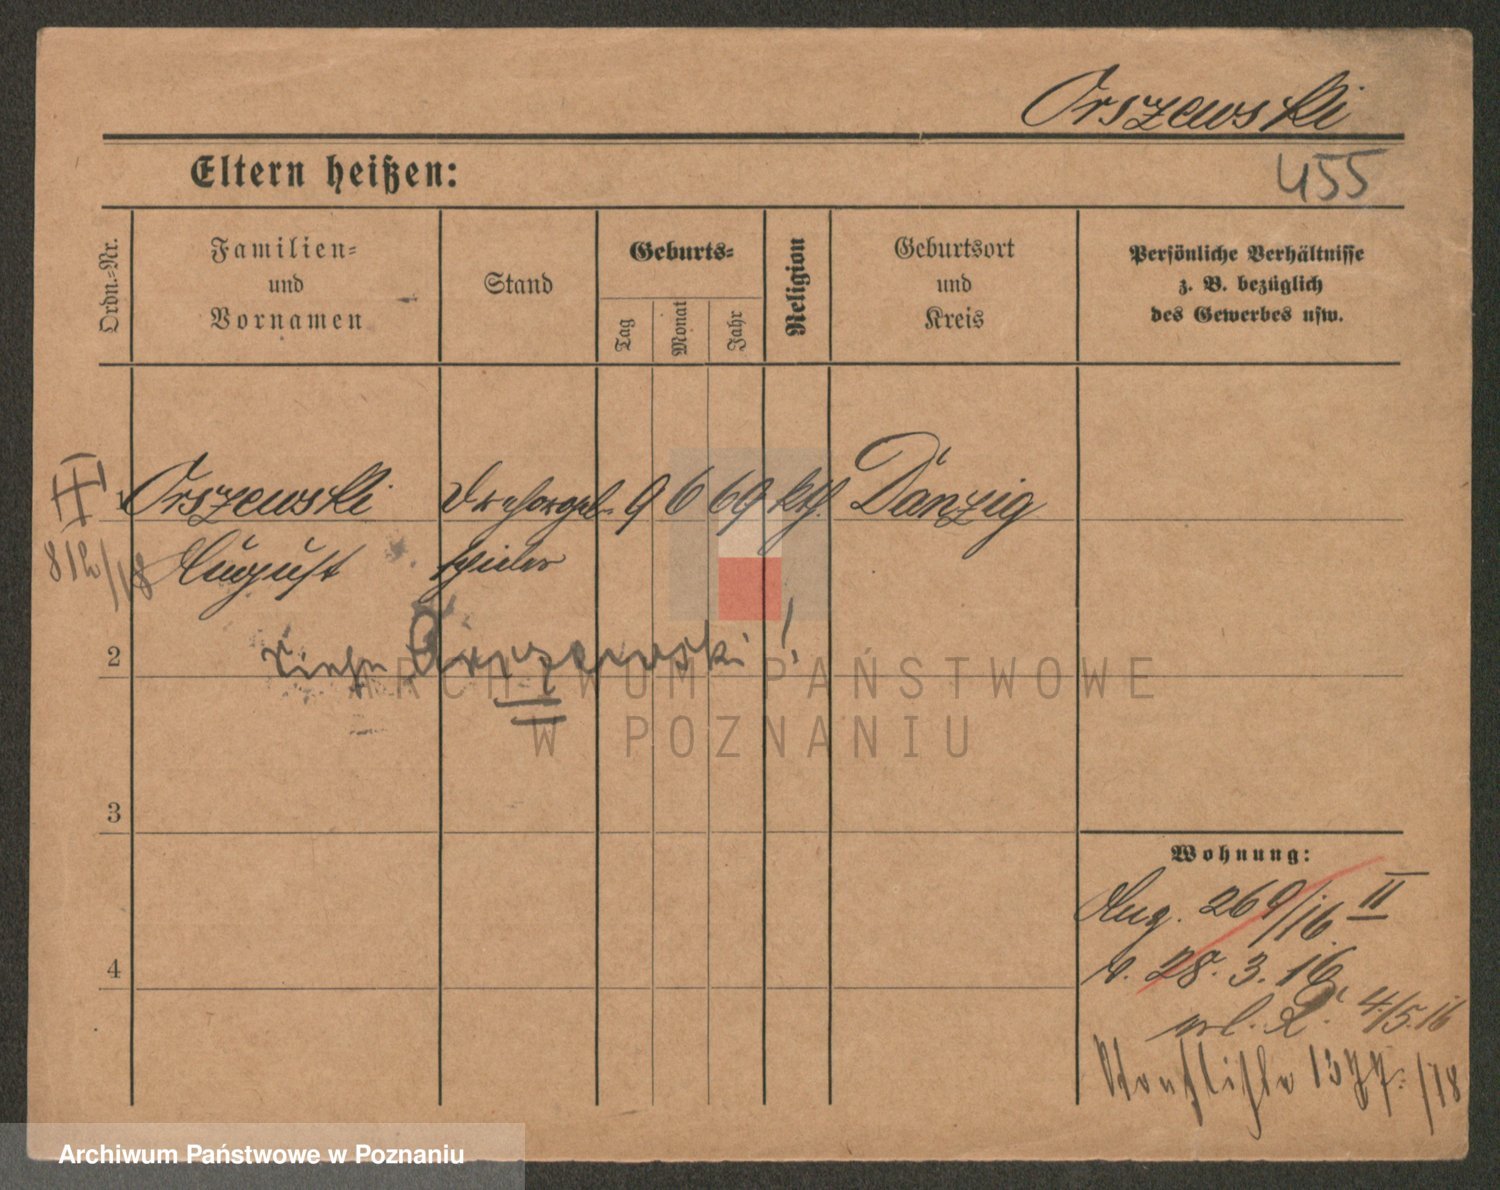 Orszewski
455
Eltern heißen:
Ordn.=Nr.
Familien=
und
Vornamen
Stand
Geburts=
Tag
Monat
Jahr
Religion
Geburtsort
und
Kreis
Persönliche Verhältnisse
z. B. bezüglich
des Gewerbes usw.
III
Orszewski Drehorgel- 9 6 69 kth. Danzig
August spieler
2
siehe Orszewski!
ARCHIWUM PAŃSTWOWE
W POZNANIU
3
Wohnung:
Aug. 269/16. II
v. 28. 3. 16
4
4/5.16
Strafliste 1377./18
Archiwum Państwowe w Poznaniu